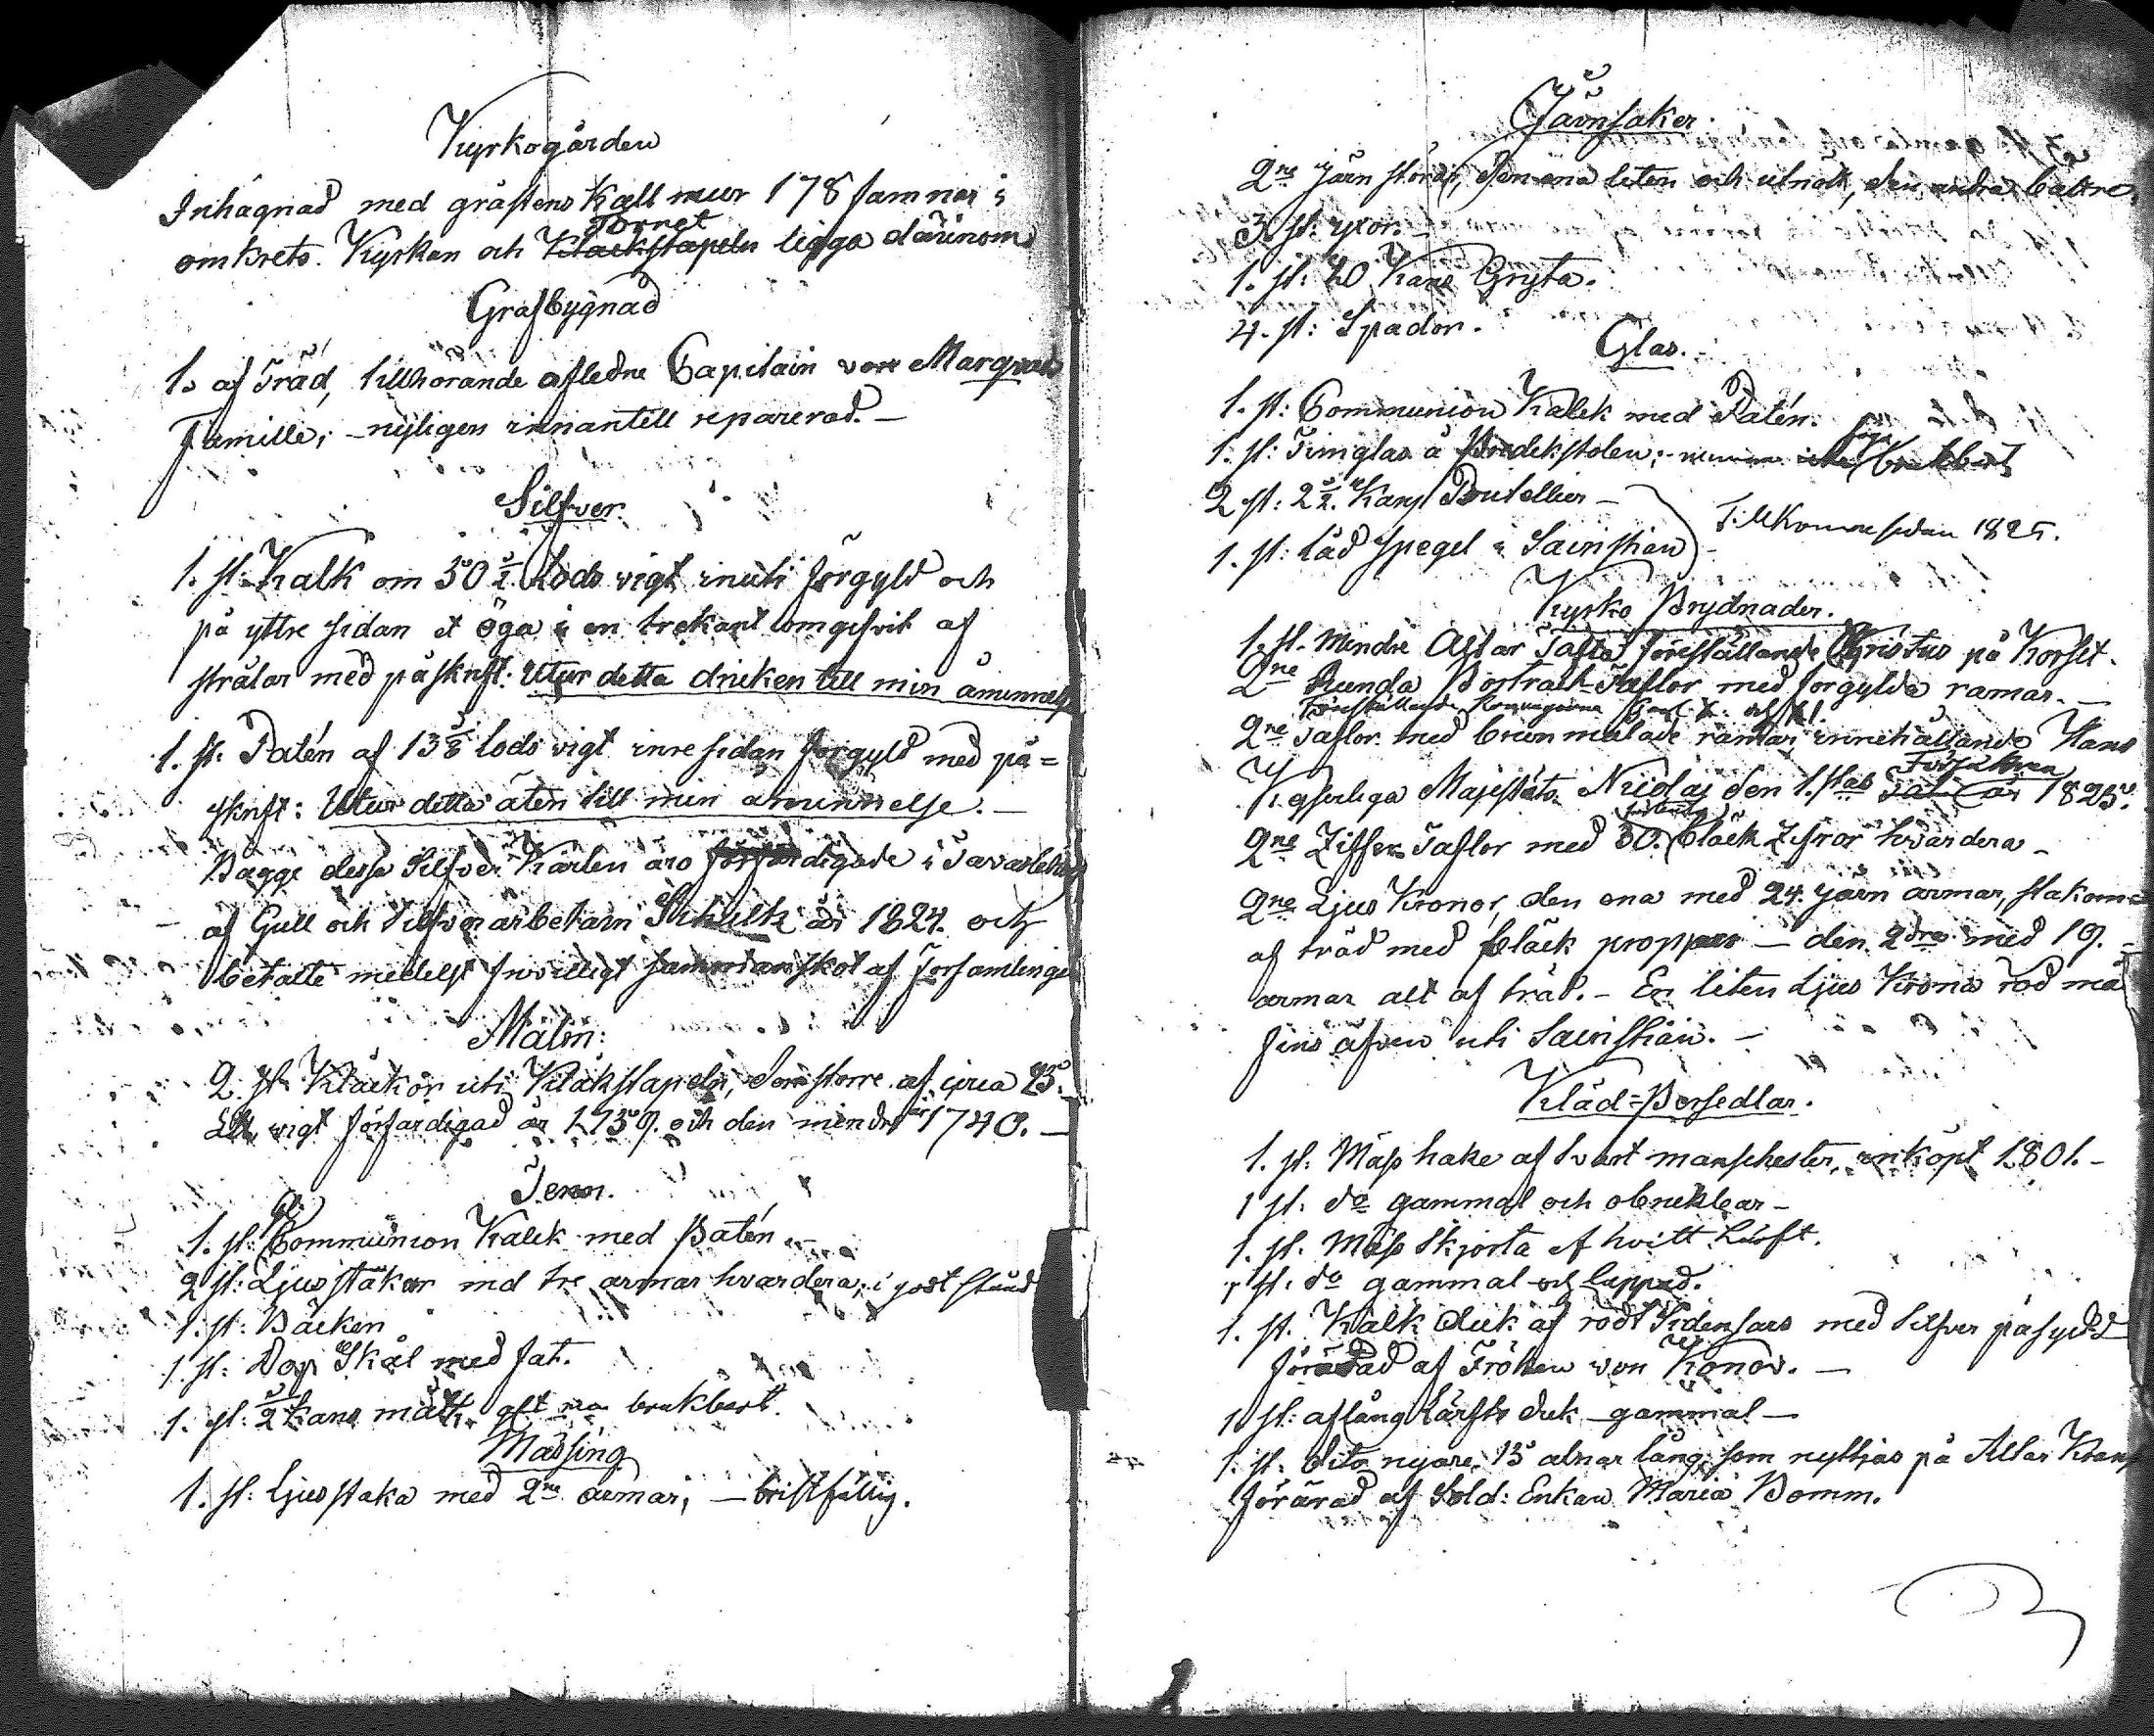 Kyrkogården
Inhägnad med gråstens Kall mur 178 famnar i
Tornet
omkrets. Kyrkan och Klackstapeln ligga därinom
Grafbygnad
1. af Träd, tillhörande afledne Capitain von Marqvards
Famille; - nyligen innantill reparerad. -
Silfver
1. st: Kalk om 30 1/2 Lods vigt inuti förgyld och
på yttre sidan et öga i en trekant omgifvit af
strålar med påskrift: Utur detta dricken till min åminnelse
1. st: Patén af 13 5/8 lods vigt inre sidan förgyld med på=
skrift: Utur detta äten till min åminnelse. -
Bägge dessa Silfver Kärlen äro förfärdigade i Tavastehus
af Gull och Silfver arbetarn Schultz år 1824. och
betalte medelst frivilligt sammanskot af Församlingen
Malm:
2. st: Klackor uti Klåkstapeln, den större af circa 23.
L℔ vigt förfärdigad år 1739. och den mindre år 1740. -
Tenn.
Gl:
1. st: Communion Kalck med Patén. -
2 st: Ljusstakar med tre armar hvardera; i godt stånd
1. st: Bäcken
1. st: Dop Skål med fat.
1. st: 1/2 Kans mått, brukbart.
Massing
1. st: Ljusstaka med 2ne armar; - bristfällig.
Järnsaker.
2ne Järn störar, Den ena liten och utnött, den andra bättre,
3. st: yxor. -
1. st: 20 Kans Gryta.
4. st: Spador.
Glas.
1. st: Communion Kalck med Patén.
1. st: Timglas å Predikstolen; brukbart
2 st: 2 1/2. Kans Boutellier -
1. st: läd Spegel i Sacristian - Tillkomne sedan 1825.
Kyrko Prydnader.
1. st. Mindre Altar Tafla föreställande Christus på Korset.
2ne Runda Portrait-Taflor med förgylda ramar. -
Föreställande Konungarne Carl X. och XI.
2ne Taflor med brunmålade ramar innehållande Hans
Kejserliga Majestäts Nicolaj den 1.stas Försäkran år 1825.
2ne Ziffer Taflor med 30. bläck Zifror hvardera -
2ne Ljus Kronor, den ena med 24. järn armar, stakorna
af träd med bläck proppar - den 2dra med 19. -
armar alt af träd. - En liten Ljus Krona röd må
fins äfven uti Sacristian. -
Kläd=Persedlar.
1. st: Mäss hake af svart manschester, inköpt 1801. -
1 st. do gammal och obrukbar -
1. st. Mäss Skjorta af hvitt lärft.
1 st: do gammal och lappad.
1. st. Kalk Duk af rödt Sidensars med Silfver påsydd
förärad af Fröken von Konow. -
1 st: aflång Lärfts duk gammal -
1. st: dito nyare, 13 alnar lång, som nyttjas på Altar Krans
förärad af Sold: Enkan Maria Bomm.